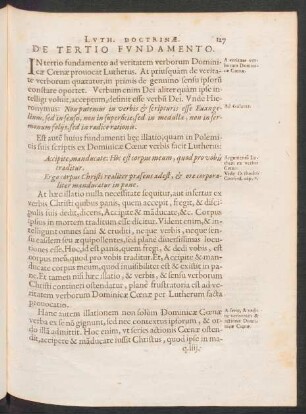 LVTH. DOCTRINÆ. 127
DE TERTIO FVNDAMENTO.
IN tertio fundamento ad veritatem verborum Domini-
cæ Cœnæ prouocat Lutherus. At priusquàm de verita-
te verborum quæratur, in primis de genuino sensu ipsorū
constare oportet. Verbum enim Dei aliter quàm ipse in-
telligi voluit, acceptum, definit esse verbū Dei. Vnde Hie-
ronymus: Nos putemur in verbis & scripturis esse Euange-
lium, sed in sensu, non in superficie, sed in medulla, non in ser-
monum folijs, sed in radice rationis.
Est autē huius fundamenti hæc illatio, quam in Polemi-
cis suis scriptis ex Dominicæ Cœnæ verbis facit Lutherus:
Accipite, manducate: Hoc est corpus meum, quod pro vobis
traditur.
Ergo corpus Christi realiter præsens adest, & ore corpora-
liter manducatur in pane.
At hæc illatio nulla necessitate sequitur, aut infertur ex
verbis Christi quibus panis, quem accepit, fregit, & di-
scipulis suis dedit, dicens, Accipite & māducate, &c. Corpus
ipsius in mortem traditum esse dicitur. Videt omnis, &
intelligit vtriusque oculis sani & truncus, neque verbis, neque sensu
easdem esse propositiones, sed planè diuersissimas locu-
tiones esse. Hoc, id est panis, quem fregi, & dedi vobis, est cor-
pus meum, quod pro vobis traditur. Et, Accipite & man-
ducate corpus meum, quod inuisibiliter est & existit in pane.
Et tamen nisi hæc illatio, & verbis, & sensu verborum
Christi conueniri ostendatur, planè frustratoria est ad
veritatem verborum Dominicæ Cœnæ per Lutherum facta
prouocatio.
Hanc autem illationem non solùm Dominicæ Cœnæ
verba ex se nō gignunt, sed nec contextus ipsorum, & or-
do illā admittit. Hic enim, vt series actionis Cœnæ osten-
dit, accipere & māducare iussit Christus, quod ipse in ma-
q. iiij.
A veritate ver-
borum Domini-
cæ Cœnæ.
Ad Galatas.
Argumentū Lu-
theri ex verbis
Cœnæ.